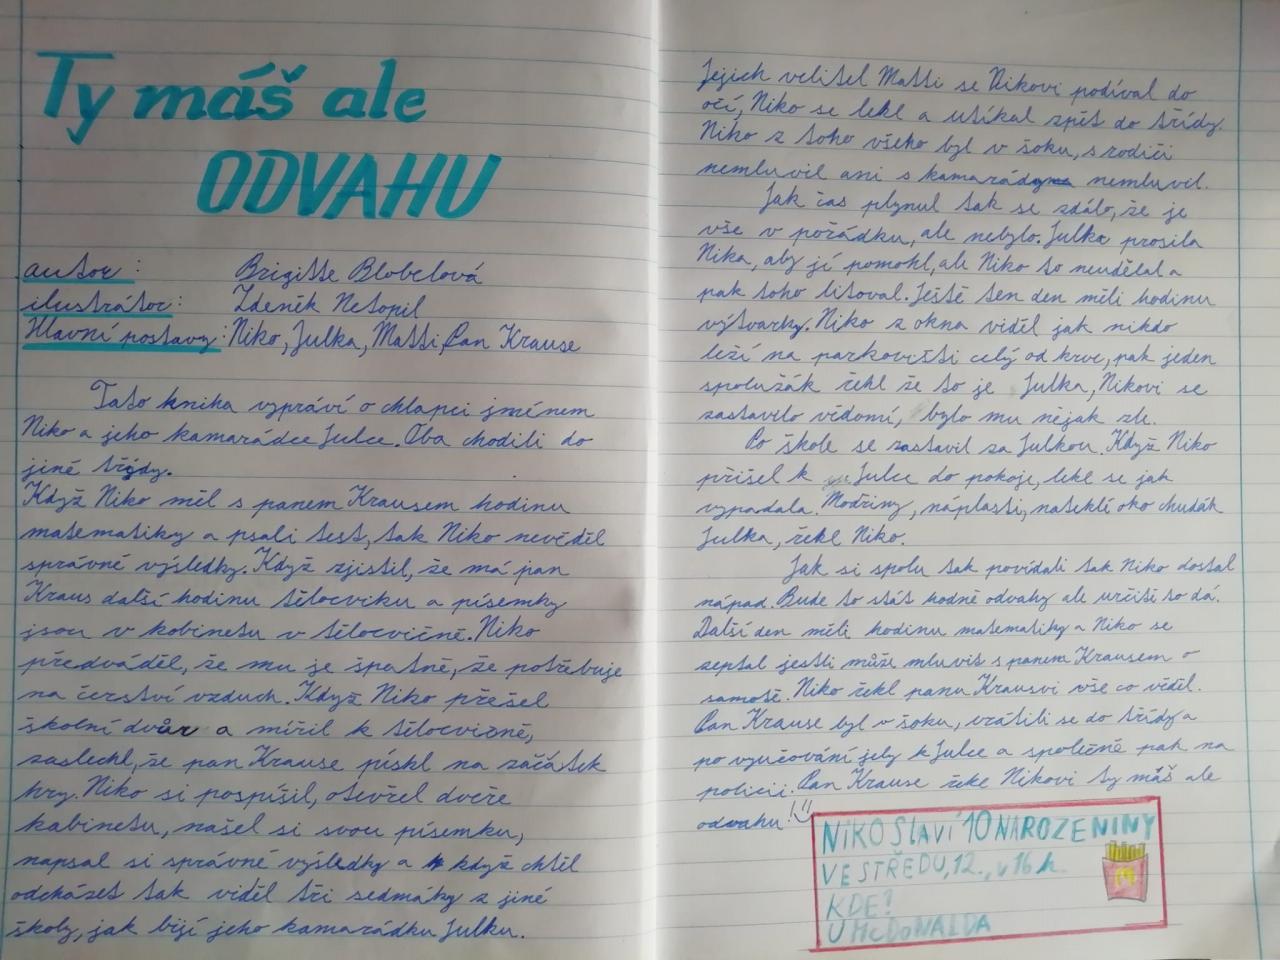 Ty máš ale
ODVAHU
autor: Brigitte Blobelová
ilustrátor: Zdeněk Netopil
Hlavní postavy: Niko, Julka, Matti, Pan Krause
Tato kniha vypráví o chlapci jménem
Niko a jeho kamarádce Julce. Oba chodili do
jiné třídy.
Když Niko měl s panem Krausem hodinu
matematiky a psali test, tak Niko nevěděl
správné výsledky. Když zjistil, že má pan
Kraus další hodinu tělocviku a písemky
jsou v kobinetu v tělocvičně. Niko
předváděl, že mu je špatně, že potřebuje
na čerství vzduch. Když Niko přešel
školní dvůr a mířil k tělocvičně,
zaslechl, že pan Krause pískl na začátek
hry. Niko si pospíšil, otevřel dveře
kabinetu, našel si svou písemku,
napsal si správné výsledky a když chtěl
odcházet tak viděl tři sedmáky z jiné
školy, jak bijí jeho kamarádku Julku.
Jejich velitel Matti se Nikovi podíval do
očí, Niko se lekl a utíkal zpět do třídy.
Niko z toho všeho byl v šoku, s rodiči
nemluvil ani s kamarády nemluvil.
Jak čas plynul tak se zdálo, že je
vše v pořádku, ale nebylo. Julka prosila
Nika, aby jí pomohl, ale Niko to neudělal a
pak toho litoval. Ještě ten den měli hodinu
výtvarky. Niko z okna viděl jak nikdo
leží na parkovišti celý od krve, pak jeden
spolužák řekl že to je Julka, Nikovi se
zastavilo vědomí, bylo mu nějak zle.
Po škole se zastavil za Julkou. Když Niko
přišel k Julce do pokoje, lekl se jak
vypadala. Modřiny, náplasti, nateklí oko chudák
Julka, řekl Niko.
Jak si spolu tak povídali tak Niko dostal
nápad. Bude to stát hodně odvahy ale určitě to dá.
Další den měli hodinu matematiky a Niko se
zeptal jestli může mluvit s panem Krausem o
samotě. Niko řekl panu Krausvi vše co věděl.
Pan Krause byl v šoku, vrátili se do třídy a
po vyučování jely k Julce a společně pak na
policii. Pan Krause řeke Nikovi ty máš ale
odvahu!
NIKO SLAVÍ 10 NAROZENINY
VE STŘEDU, 12., v 16 h.
KDE?
U McDONALDA